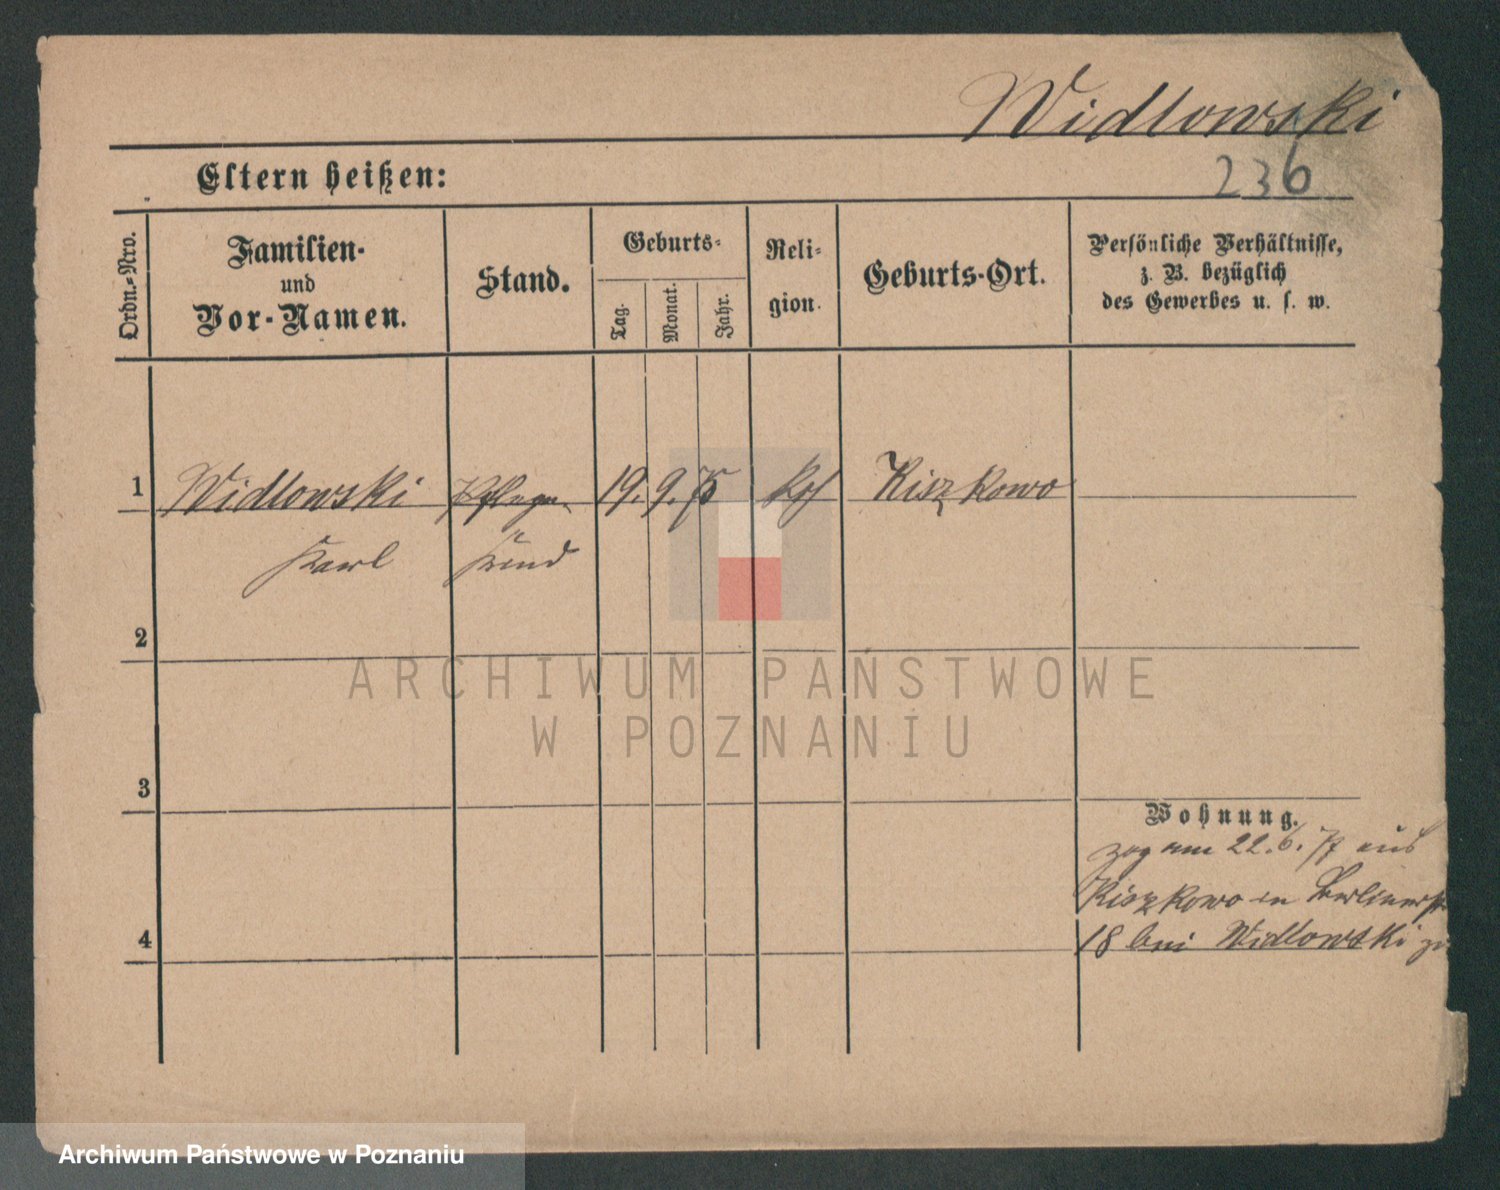 Widlowski
Eltern heißen:
236
Ordn.-Nro.
Familien-
und
Vor-Namen.
Stand.
Geburts-
Tag.
Monat.
Jahr.
Reli-
gion.
Geburts-Ort.
Persönliche Verhältnisse,
z. B. bezüglich
des Gewerbes u. s. w.
1 Widlowski Pflege- 19. 9. 75 Kiszkowo
Karl Kind
2
ARCHIWUM PAŃSTWOWE
W POZNANIU
3
Wohnung.
zog am 22. 6. 77 aus
Kiszkowo in Berlinerstr
4 18 bei Widlowski zu
Archiwum Państwowe w Poznaniu